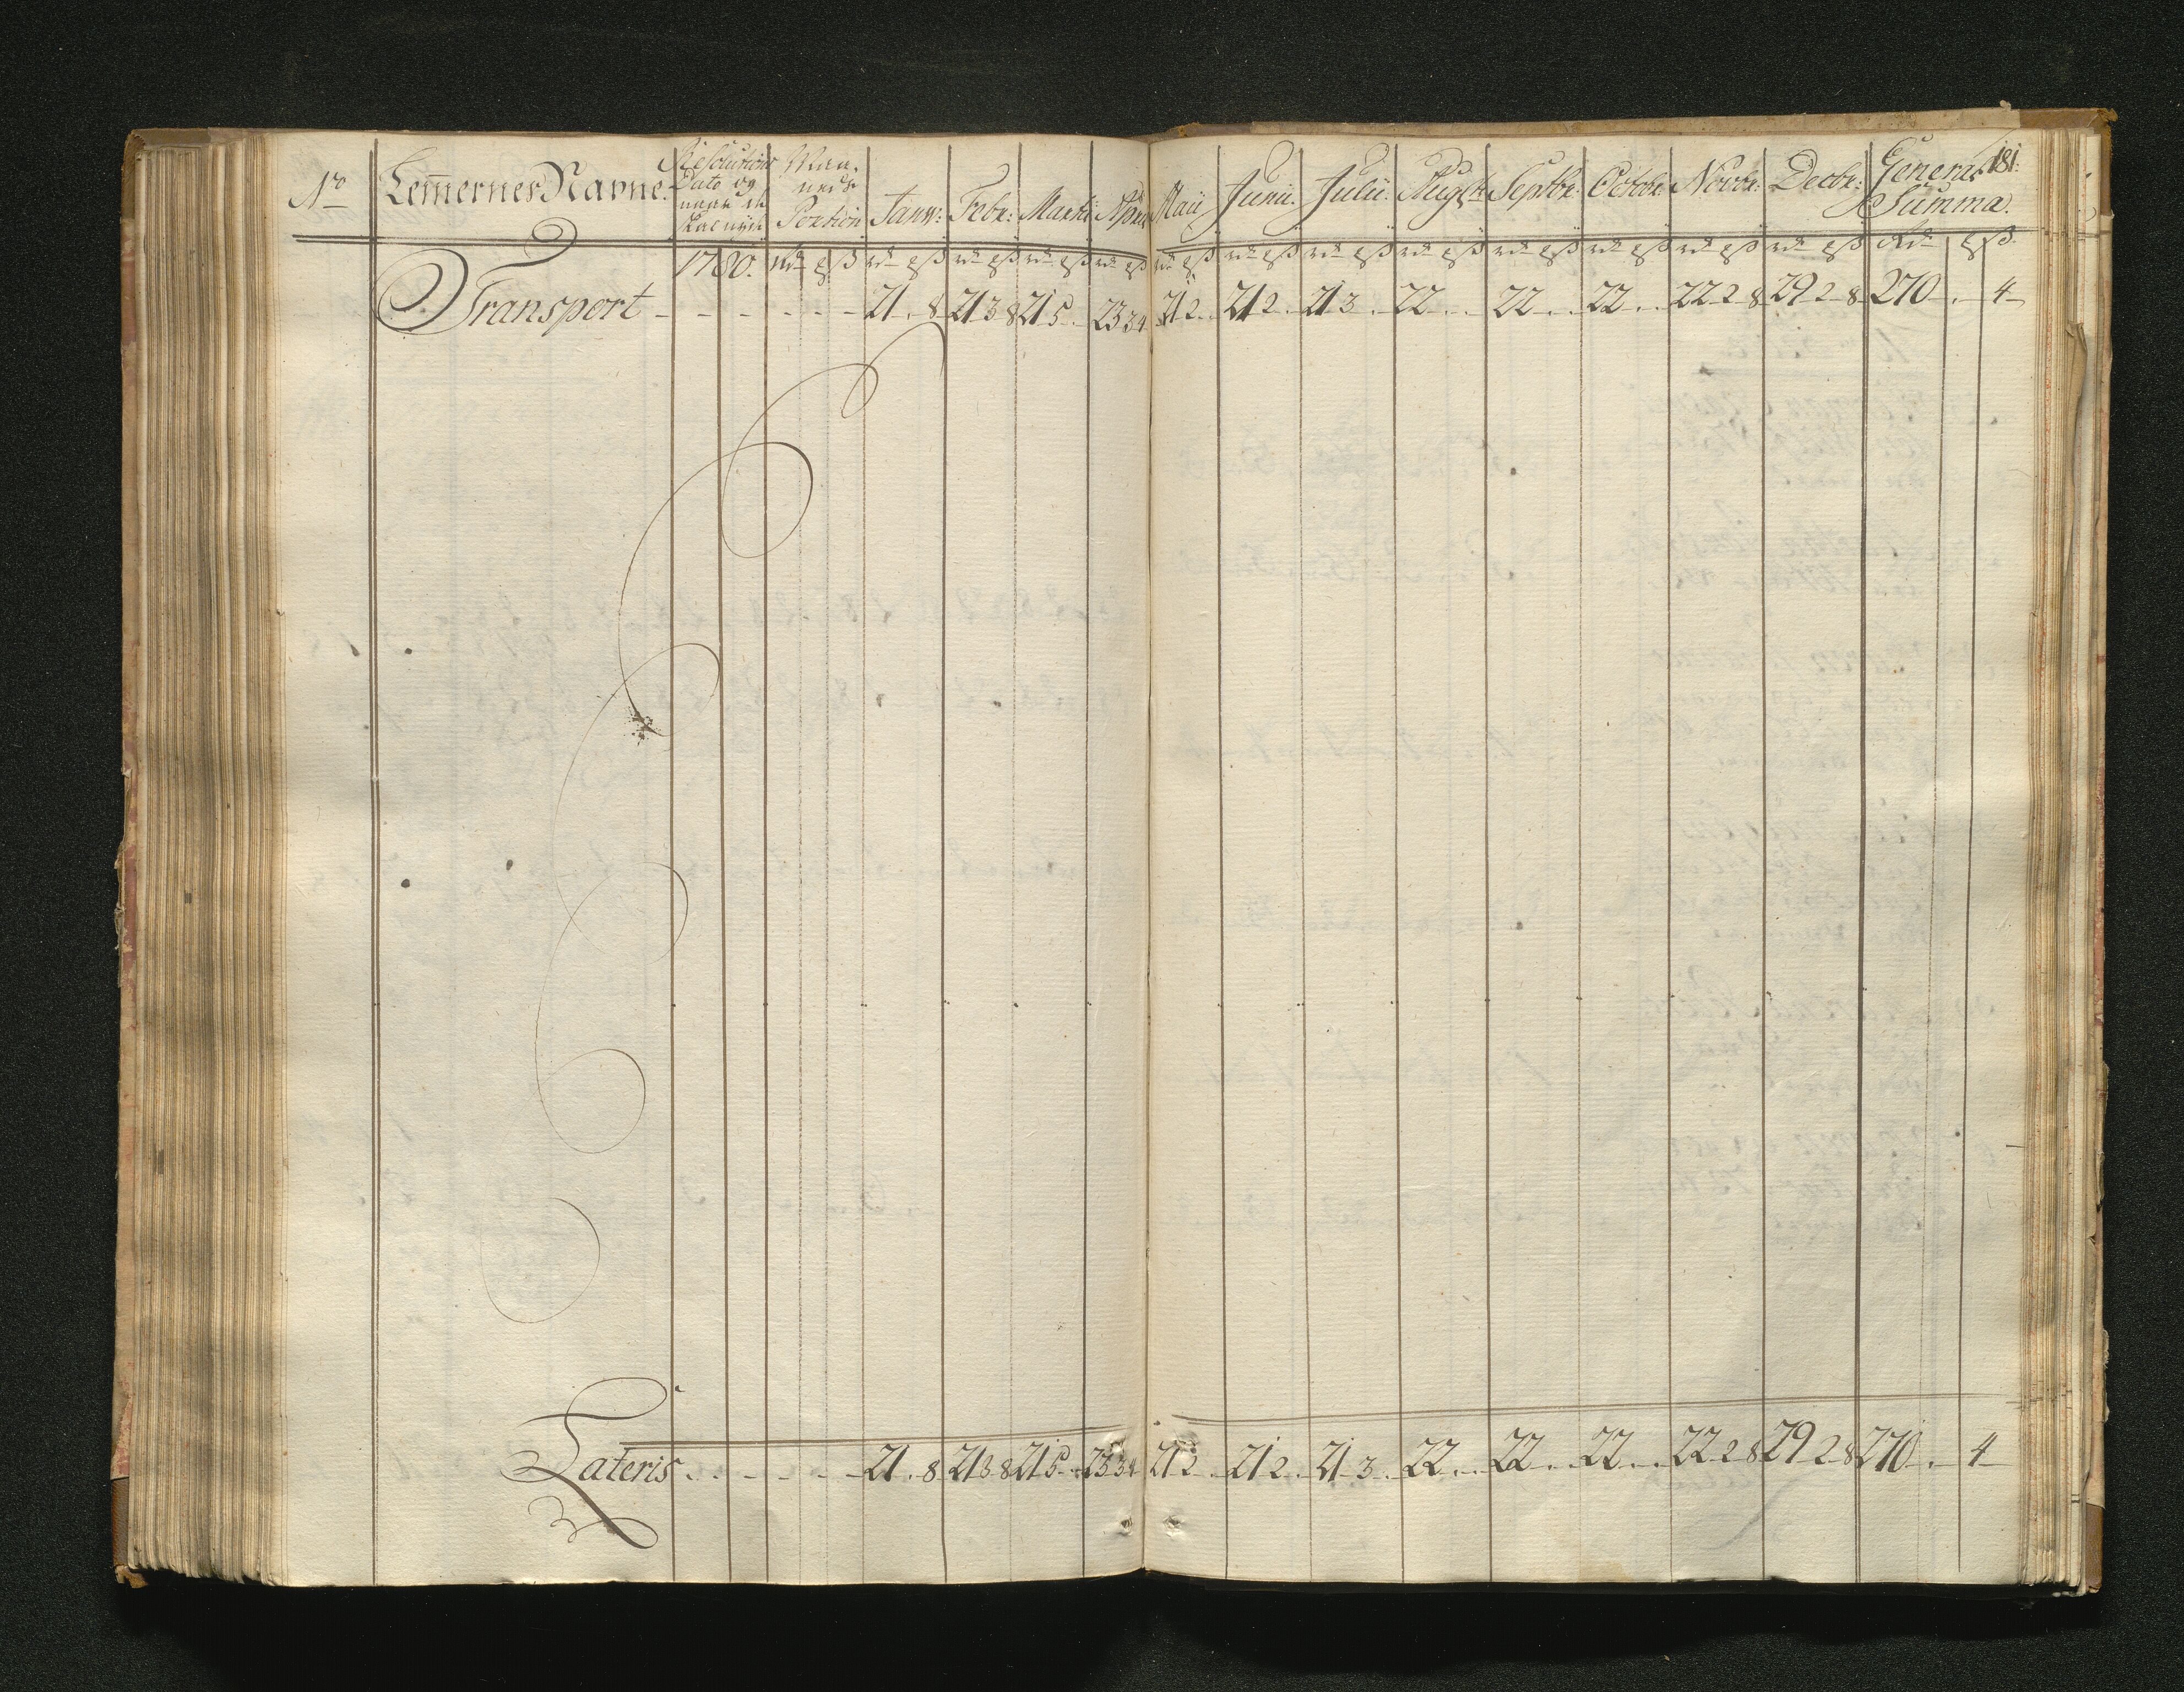 181.
No Lem̄ernes Navne. Resolutions Dato og Maa- neds Portion Janv: Febr: Martii April Maii Junii: Julii: Augste Septbr: Octobr: Novbr: Decbr: General Summa.
1780. rdr ß rdr ß rdr ß rdr ß rdr ß rdr ß rdr ß rdr ß rdr ß rdr ß rdr ß rdr ß rdr ß rdr ß
Transport - - - - - - - 21 . 8 21 3 8 21 5 . 23 3 4 21 2 . 21 2 . 21 3 . 22 . . 22 . . 22 . . 22 2 8 29 2 8 270 . 4
Lateris - - - - - - 21 . 8 21 3 8 21 5 . 23 3 4 21 2 . 21 2 . 21 3 . 22 . . 22 . . 22 . . 22 2 8 29 2 8 270 . 4